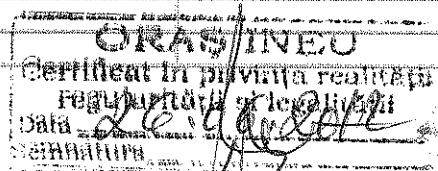 ORAȘ INEU
Certificat în privința realității
regularității și legalității
Data 26
Semnătura